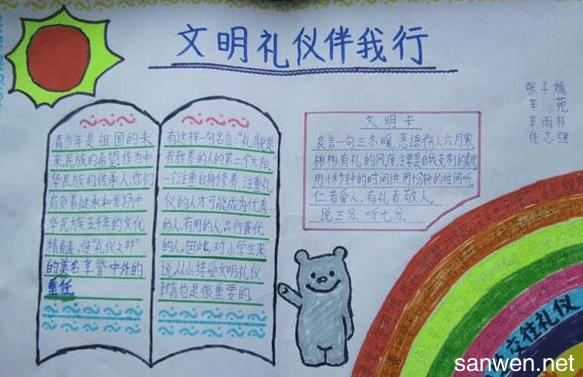 文明礼仪伴我行
张子嫣
李雨
任志强
青少年是祖国的未
来,民族的希望,作为中
华民族的传承人,你们
有负责继承和发扬中
华民族五千年的文化
精髓,使“礼仪之邦”
的美名享誉中外的
重任
有这样一句名言:“礼貌是
有教养的人的第一个太阳”
一个注重自身修养,注重礼
仪的人才可能成为优秀
的人,有用的人,品行兼优
的人,因此,对小学生来
说,从小接受文明礼仪
教育也是很重要的
文明卡
良言一句三冬暖,恶语伤人六月寒
彬彬有礼的风度,主要是自我克制的表现
用十分钟的时间讲,用分钟的时间听
仁者爱人,有礼者敬人
说三分,听七分
交往礼仪
sanwen.net